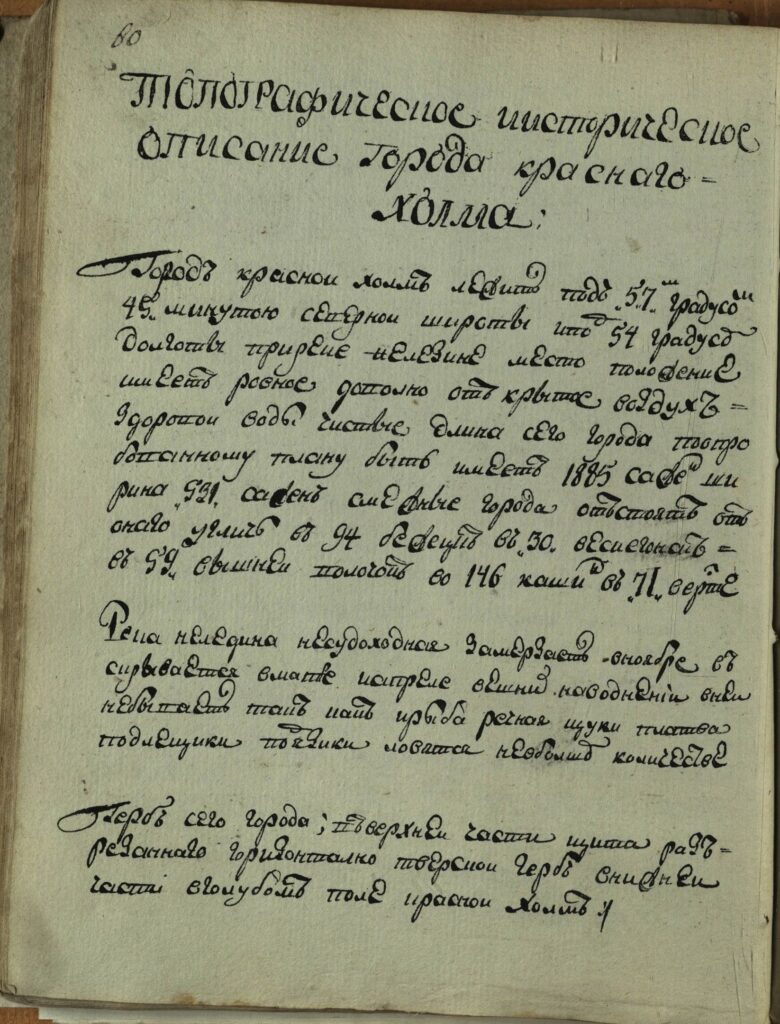 60
Топографическое иисторическое
описание города краснаго=
холма:
Городъ красной холмъ лежитъ подъ „57„ градусом
45„ минутою северной широты ипо 54 градусо
долготы приреке нелезине место положение
имеетъ ровное дополно отъ крытое воздухъ=
здоровои воды чистые длина сего города поопро
бованному плану быть имеетъ 1885 саже ши
рина „931„ сажень смежные города отъстоятъ отъ
онаго угличь въ 94 бежецтъ въ„30„ весиегонскъ=
въ 59„ вышнеи волочокъ во 146 кашин въ „71„ верте
Река неледина несудоходная замерзаетъ вноябре въ
скрывается вмапте иапреле вешних наводненіи внеи
небываетъ такъ какъ ирыба речная щуки платва
подлещики повязики ловятся невболшо количестве
Гербъ сего города; въверхнеи части щита разъ=
резаннаго горизонтално тверской гербъ внижнеи
части вголубомъ поле красной холмъ:/